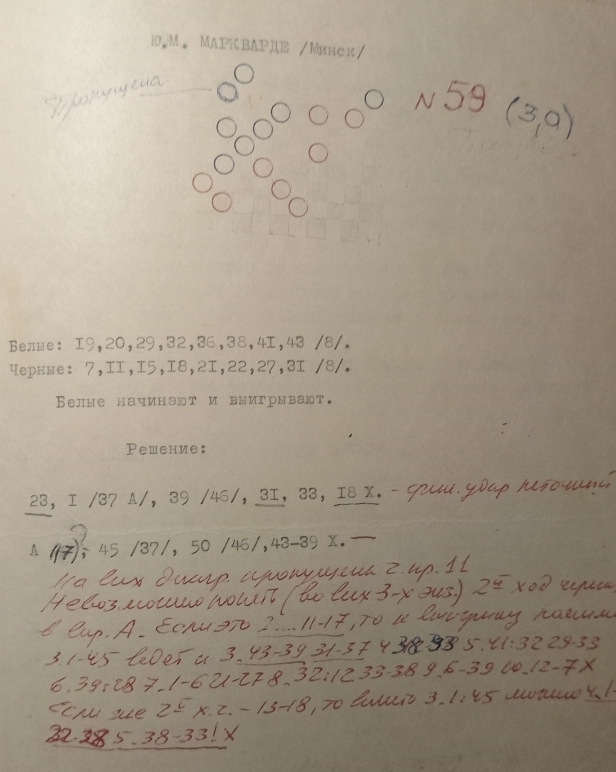 Ю.М. МАРКВАРДЕ /Минск/
Пропущена
N 59 (3,0)
Белые: 19,20,29,32,36,38,41,43 /8/.
Черные: 7,11,15,18,21,22,27,31 /8/.
Белые начинают и выигрывают.
Решение:
23, 1 /37 А/, 39 /46/, 31, 33, 18 Х. - фин. удар неточный
А (17)?, 45 /37/, 50 /46/,43-39 Х.
На всех диагр. пропущена ч. пр. 11
Невозможно понять (во всех 3-х экз.) 2й ход черных
в вар. А. Если это 2....11-17, то к выигрышу
3.1-45 ведет и 3.43-39 31-37 4 38-33 5.41:32 29-33
6.39:28 7.1-6 21-27 8.32:12 33-38 9.6-39 10.12-7Х
Если же 2й х.ч. - 13-18, то вместо 3.1:45 можно 4.1-
32-28 5.38-33! Х